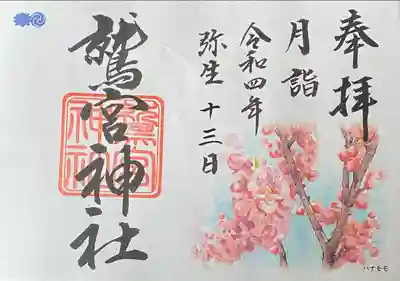 奉拝
月詣
令和四年
弥生十三日
鷲宮神社
鷲宮
神社
ハナモモ